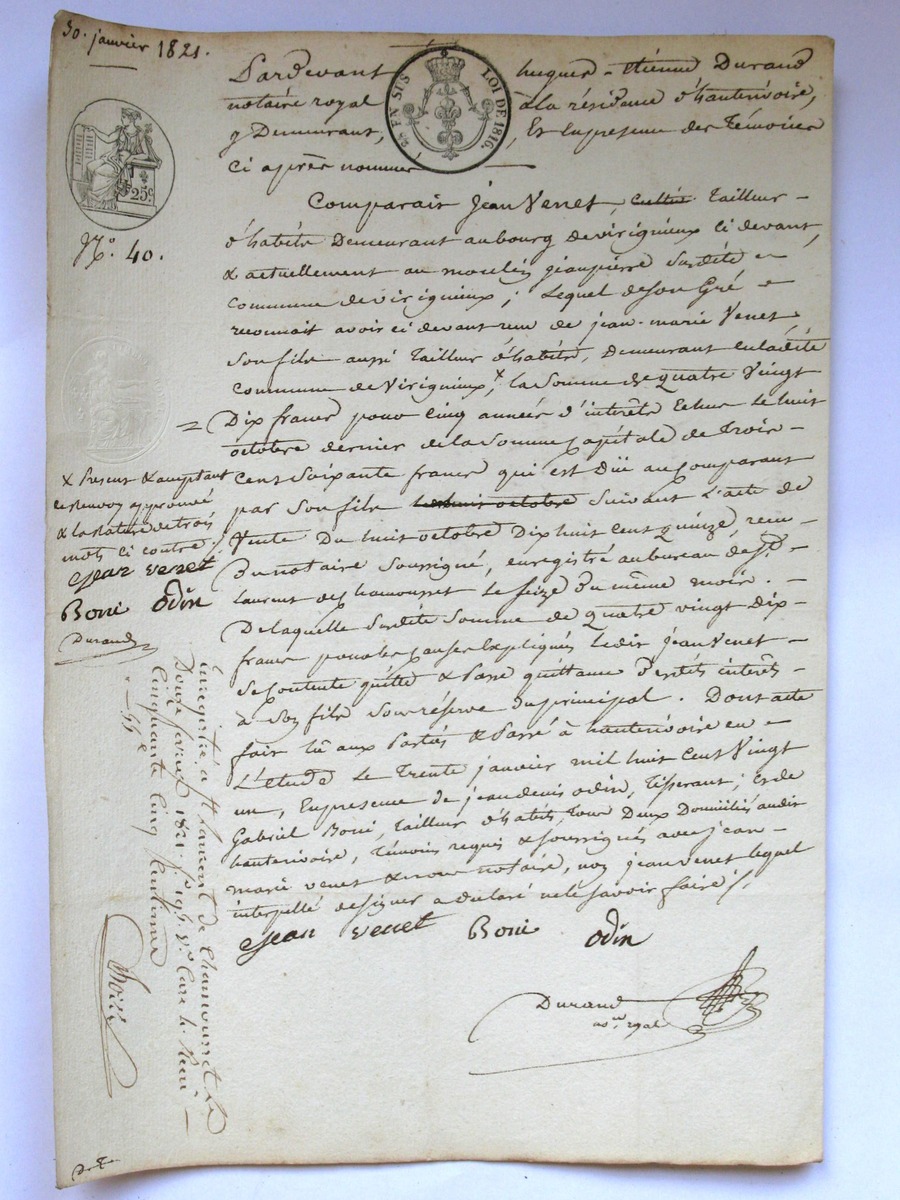 30. janvier 1821.
Pardevant hugues-étienne Durand
notaire royal à la résidence d'hauterivoire,
y Demeurant, Et En presence des Témoins
ci après nommés
EN SUS LOI DE 1816.
25c.
N.° 40.
Comparait Jean Venet, cultiv. Tailleur
d'habits Demeurant au bourg de virigneux ci devant,
& actuellement au moulin jeanpierre Susdite
commune de virigneux; Lequel de Son Gré
reconnait avoir ci devant reçu de jean-marie Venet
Son fils aussi Tailleur d'habits, Demeurant en ladite
Commune de Virigneux, x la Somme de quatre Vingt
= Dix francs pour Cinq années d'intérêts Echus Le huit
octobre dernier de la Somme Capitale de Trois
Cent Soixante francs qui est Düe au Comparant
par Son fils le huit octobre Suivant L'acte de
Vente Du huit octobre Dix huit Cent quinze, recu
Du notaire Soussigné, enregistré au bureau de St
Laurent de chamousset Le Seize Du même mois.
De laquelle Susdite Somme de quatre vingt Dix
francs pour les causes Expliquées Ledit Jean Venet
Se Contente quitte & Passe quittance Desdits intérêts
à Son fils Sous réserve Du principal. Dont acte
fait lû aux Parties & Passé à hauterivoire en
L'étude Le Trente janvier mil huit Cent Vingt
un, En presence de jean denis odin, Tisserant; Et de
Gabriel Boni, Tailleur d'habits, Tous Deux Domiciliés audit
hauterivoire, Témoins requis & soussignés avec jean
marie venet & nous notaire, non jean venet lequel
interpellé de signer a déclaré ne le savoir faire /.
Jean venet Boni odin
Durand
nore royal
x Present & acceptant
Le Renvoy approuvé
& la Rature de trois
mots ci contre.
Jean venet
Boni Odin
Durand
Enregistré à St Laurent de Chamousset Le
Douze février 1821. fo 195. Vo Case 1. Reçu
Cinquante Cinq Centimes
55c